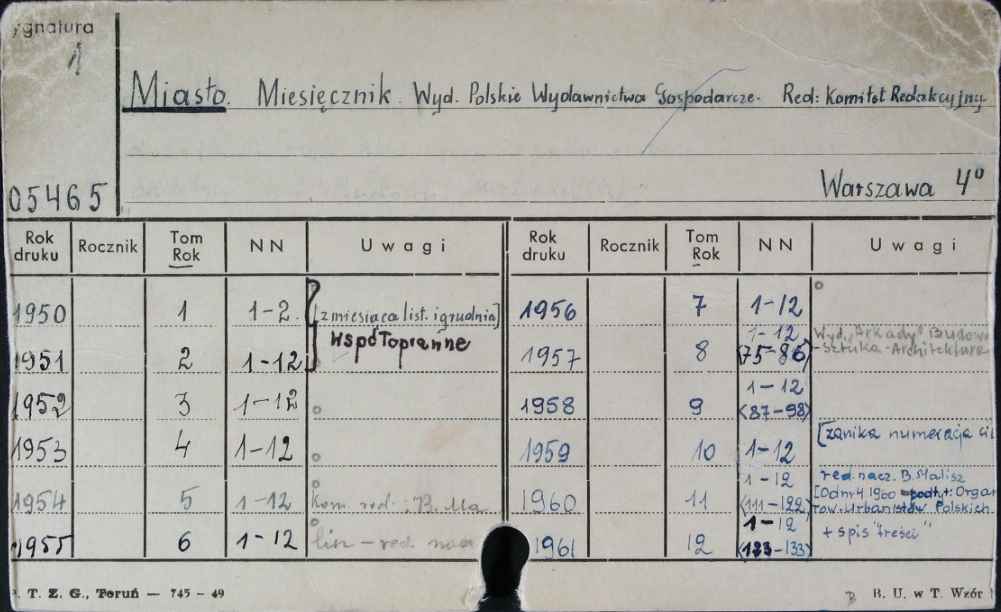 ygnatura
1
Miasto. Miesięcznik. Wyd. Polskie Wydawnictwa Gospodarcze. Red: Komitet Redakcyjny
05465
Warszawa 4°
Rok druku Rocznik Tom Rok NN Uwagi Rok druku Rocznik Tom Rok NN Uwagi
1950 1 1-2. [z miesiąca list. i grudnia] 1956 7 1-12
1951 2 1-12 współoprawne 1957 8 1-12 <75-86> Wyd. "Arkady" Budown -Sztuka-Architektura
1952 3 1-12 1958 9 1-12 <87-98>
1953 4 1-12 1959 10 1-12 [zanika numeracja
1954 5 1-12 Kom. red.: B. Ma 1960 11 1-12 <111-122> red. nacz. B. Malisz [Od nr 4 1960 podtyt: Organ Tow. Urbanistów Polskich.
1955 6 1-12 lisz - red. nacz 1961 12 1-12 <123-133> + spis "treści"
T. Z. G., Toruń — 745 - 49
B. U. w T. Wzór